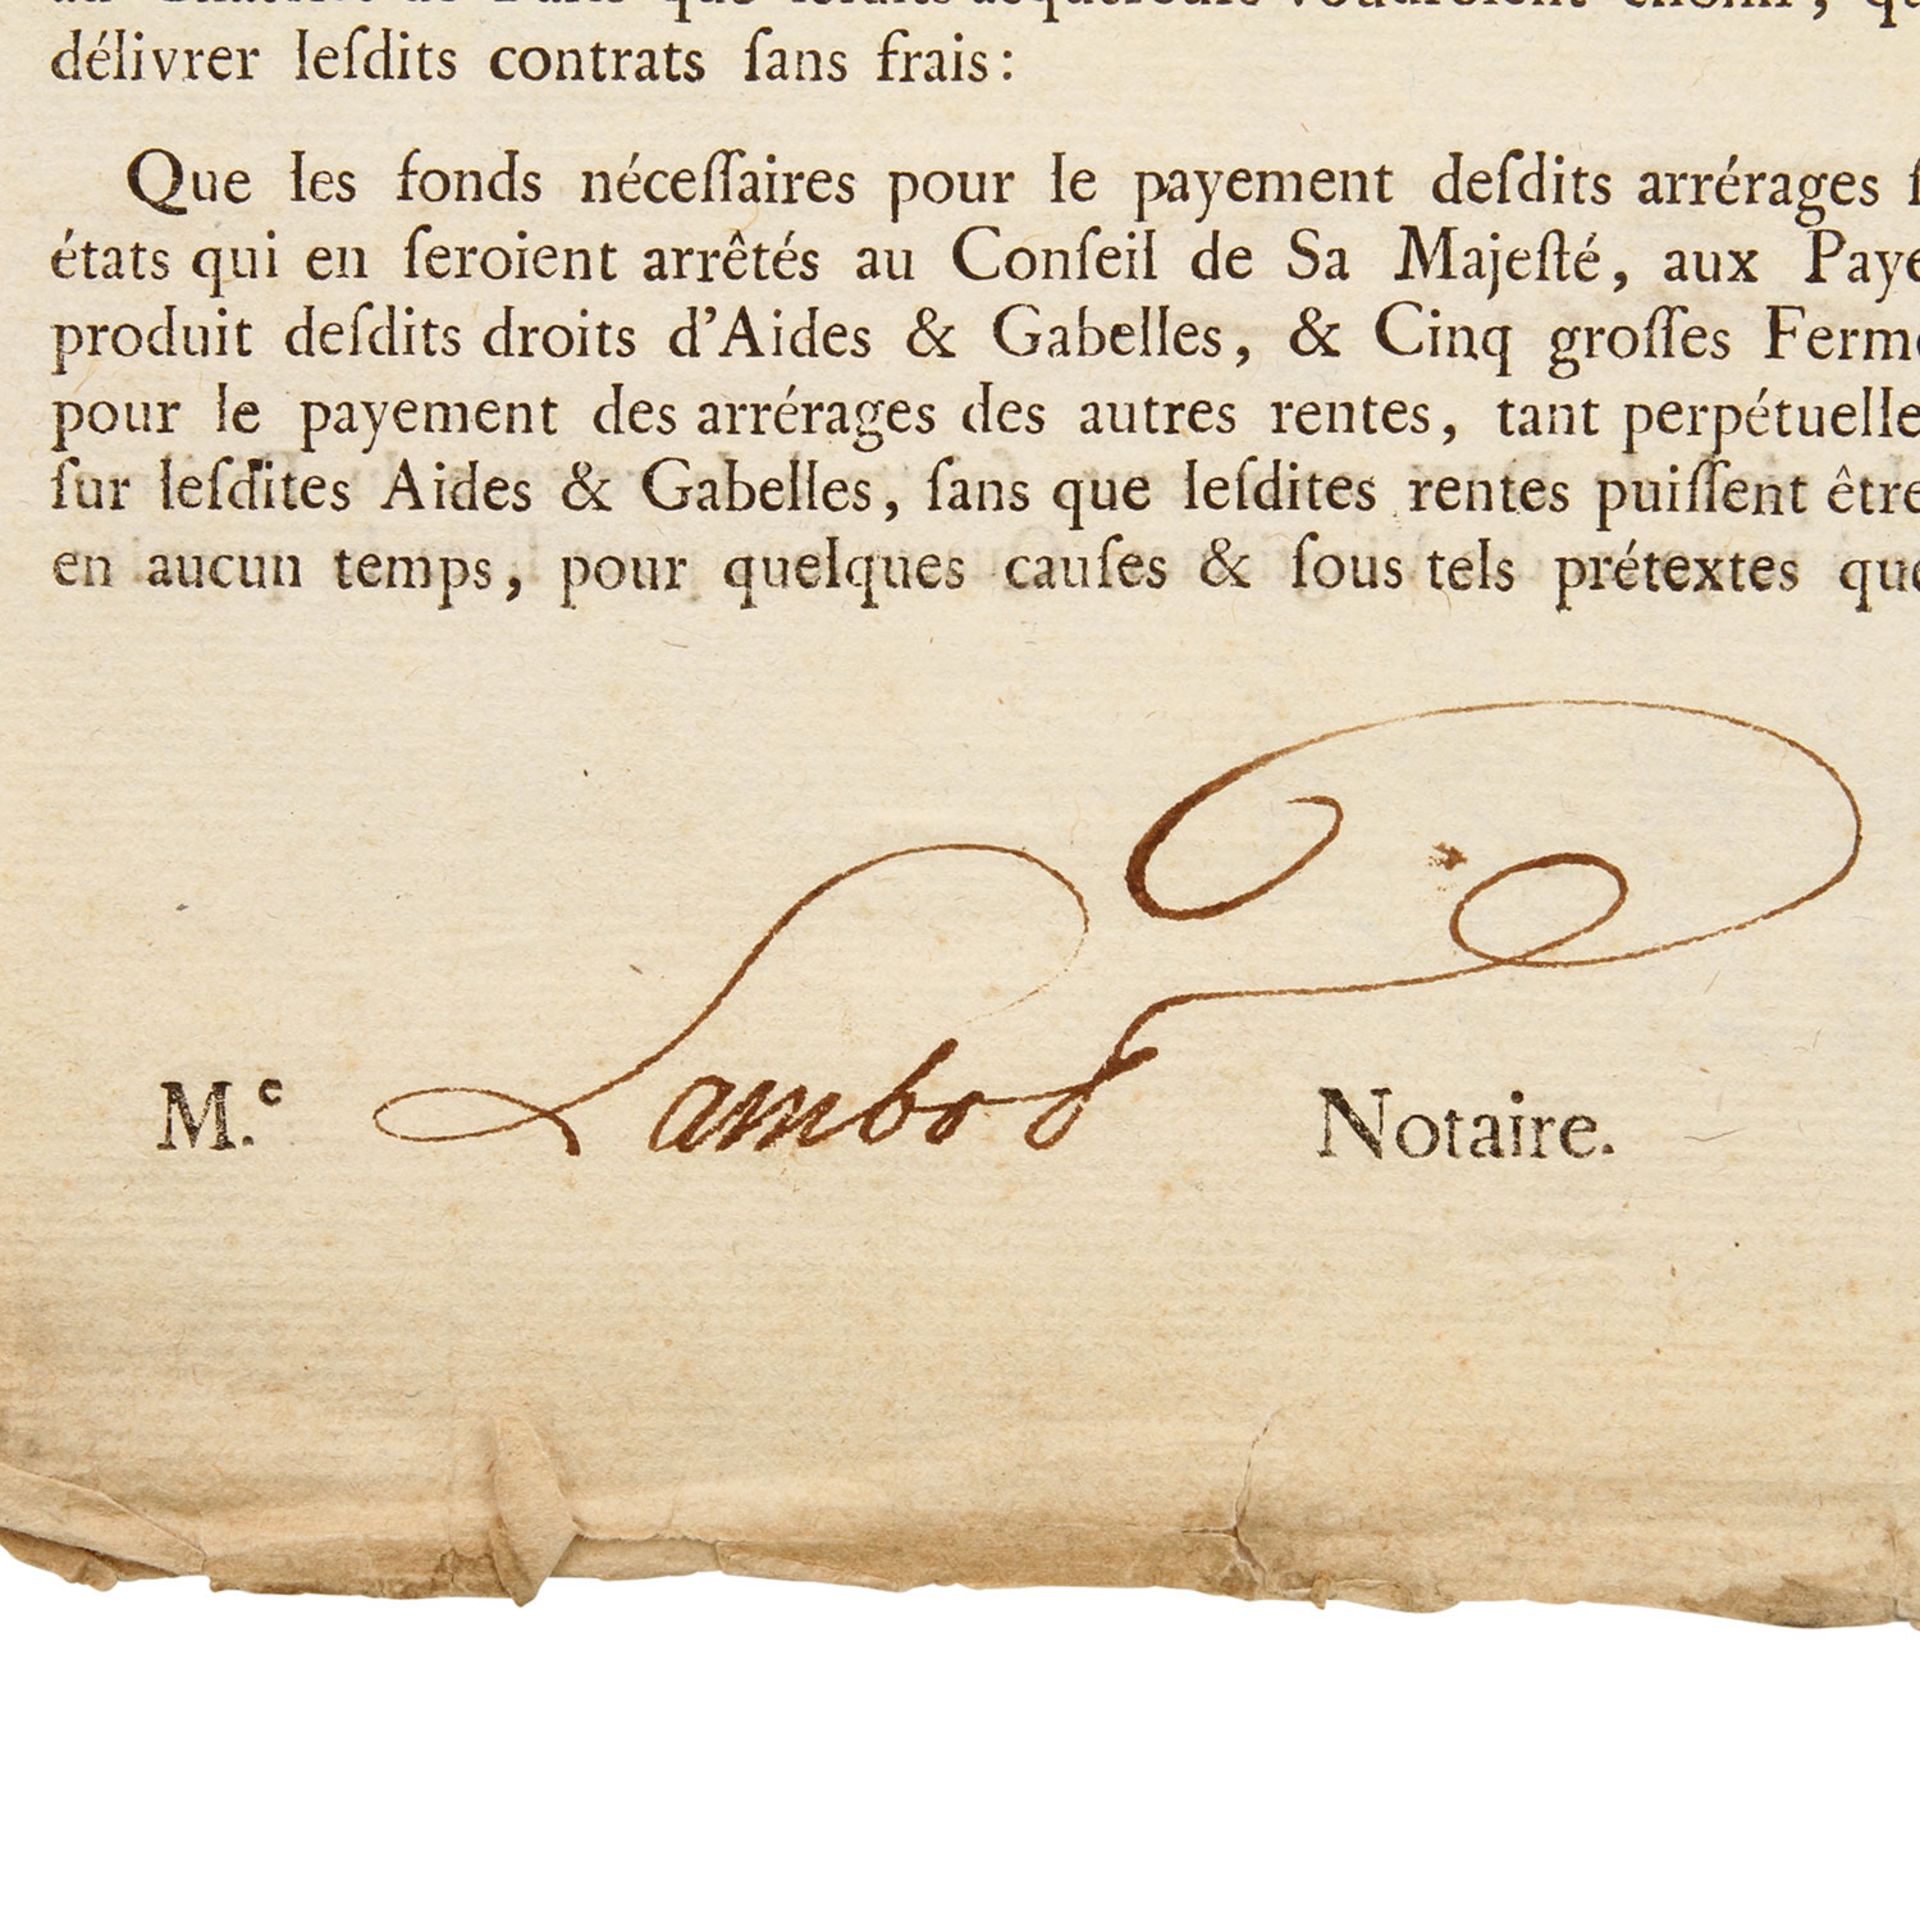 délivrer leſdits contrats ſans frais:
Que les fonds néceſſaires pour le payement deſdits arrérages
états qui en ſeroient arrêtés au Conſeil de Sa Majeſté, aux Paye
produit deſdits droits d'Aides & Gabelles, & Cinq groſſes Ferme
pour le payement des arrérages des autres rentes, tant perpétuelle
ſur leſdites Aides & Gabelles, ſans que leſdites rentes puiſſent être
en aucun temps, pour quelques cauſes & ſous tels prétextes que
M.e Lambot Notaire.